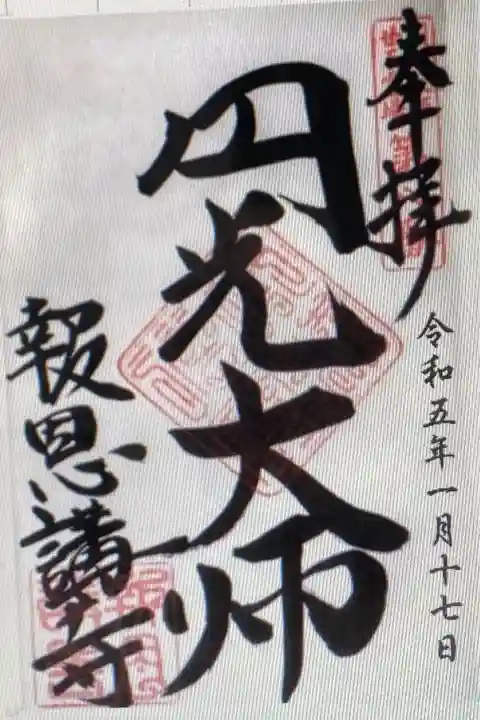 奉拝
令和五年一月十七日
円光大師
報恩講寺